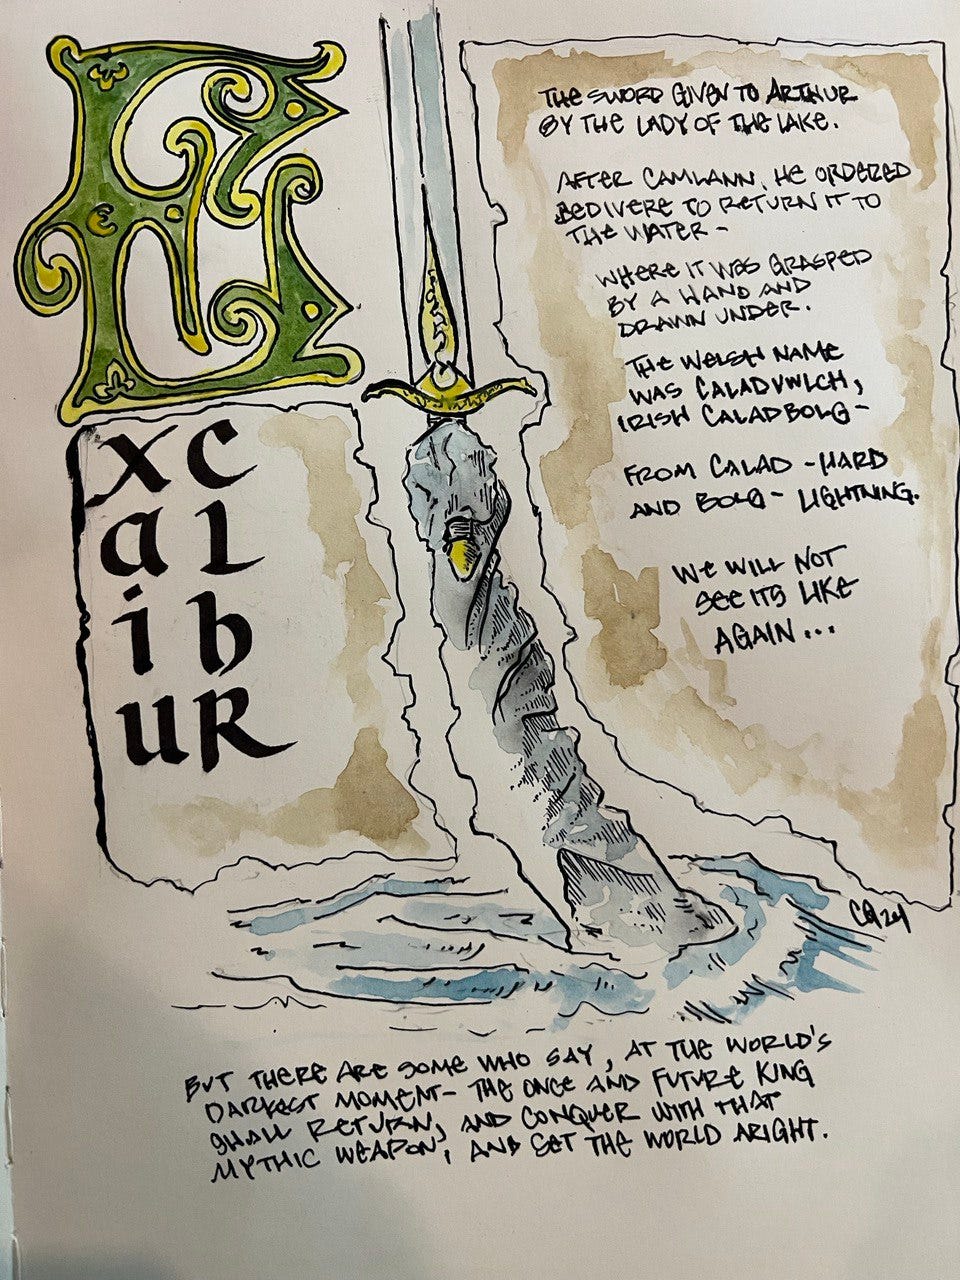 E
xc
al
ib
uR
THE SWORD GIVEN TO ARTHUR
BY THE LADY OF THE LAKE.
AFTER CAMLANN, HE ORDERED
BEDIVERE TO RETURN IT TO
THE WATER -
WHERE IT WAS GRASPED
BY A HAND AND
DRAWN UNDER.
THE WELSH NAME
WAS CALADVWLCH,
IRISH CALADBOLG -
FROM CALAD - HARD
AND BOLG - LIGHTNING.
WE WILL NOT
SEE ITS LIKE
AGAIN...
CG 24
BUT THERE ARE SOME WHO SAY, AT THE WORLD'S
DARKEST MOMENT - THE ONCE AND FUTURE KING
SHALL RETURN, AND CONQUER WITH THAT
MYTHIC WEAPON, AND SET THE WORLD ARIGHT.